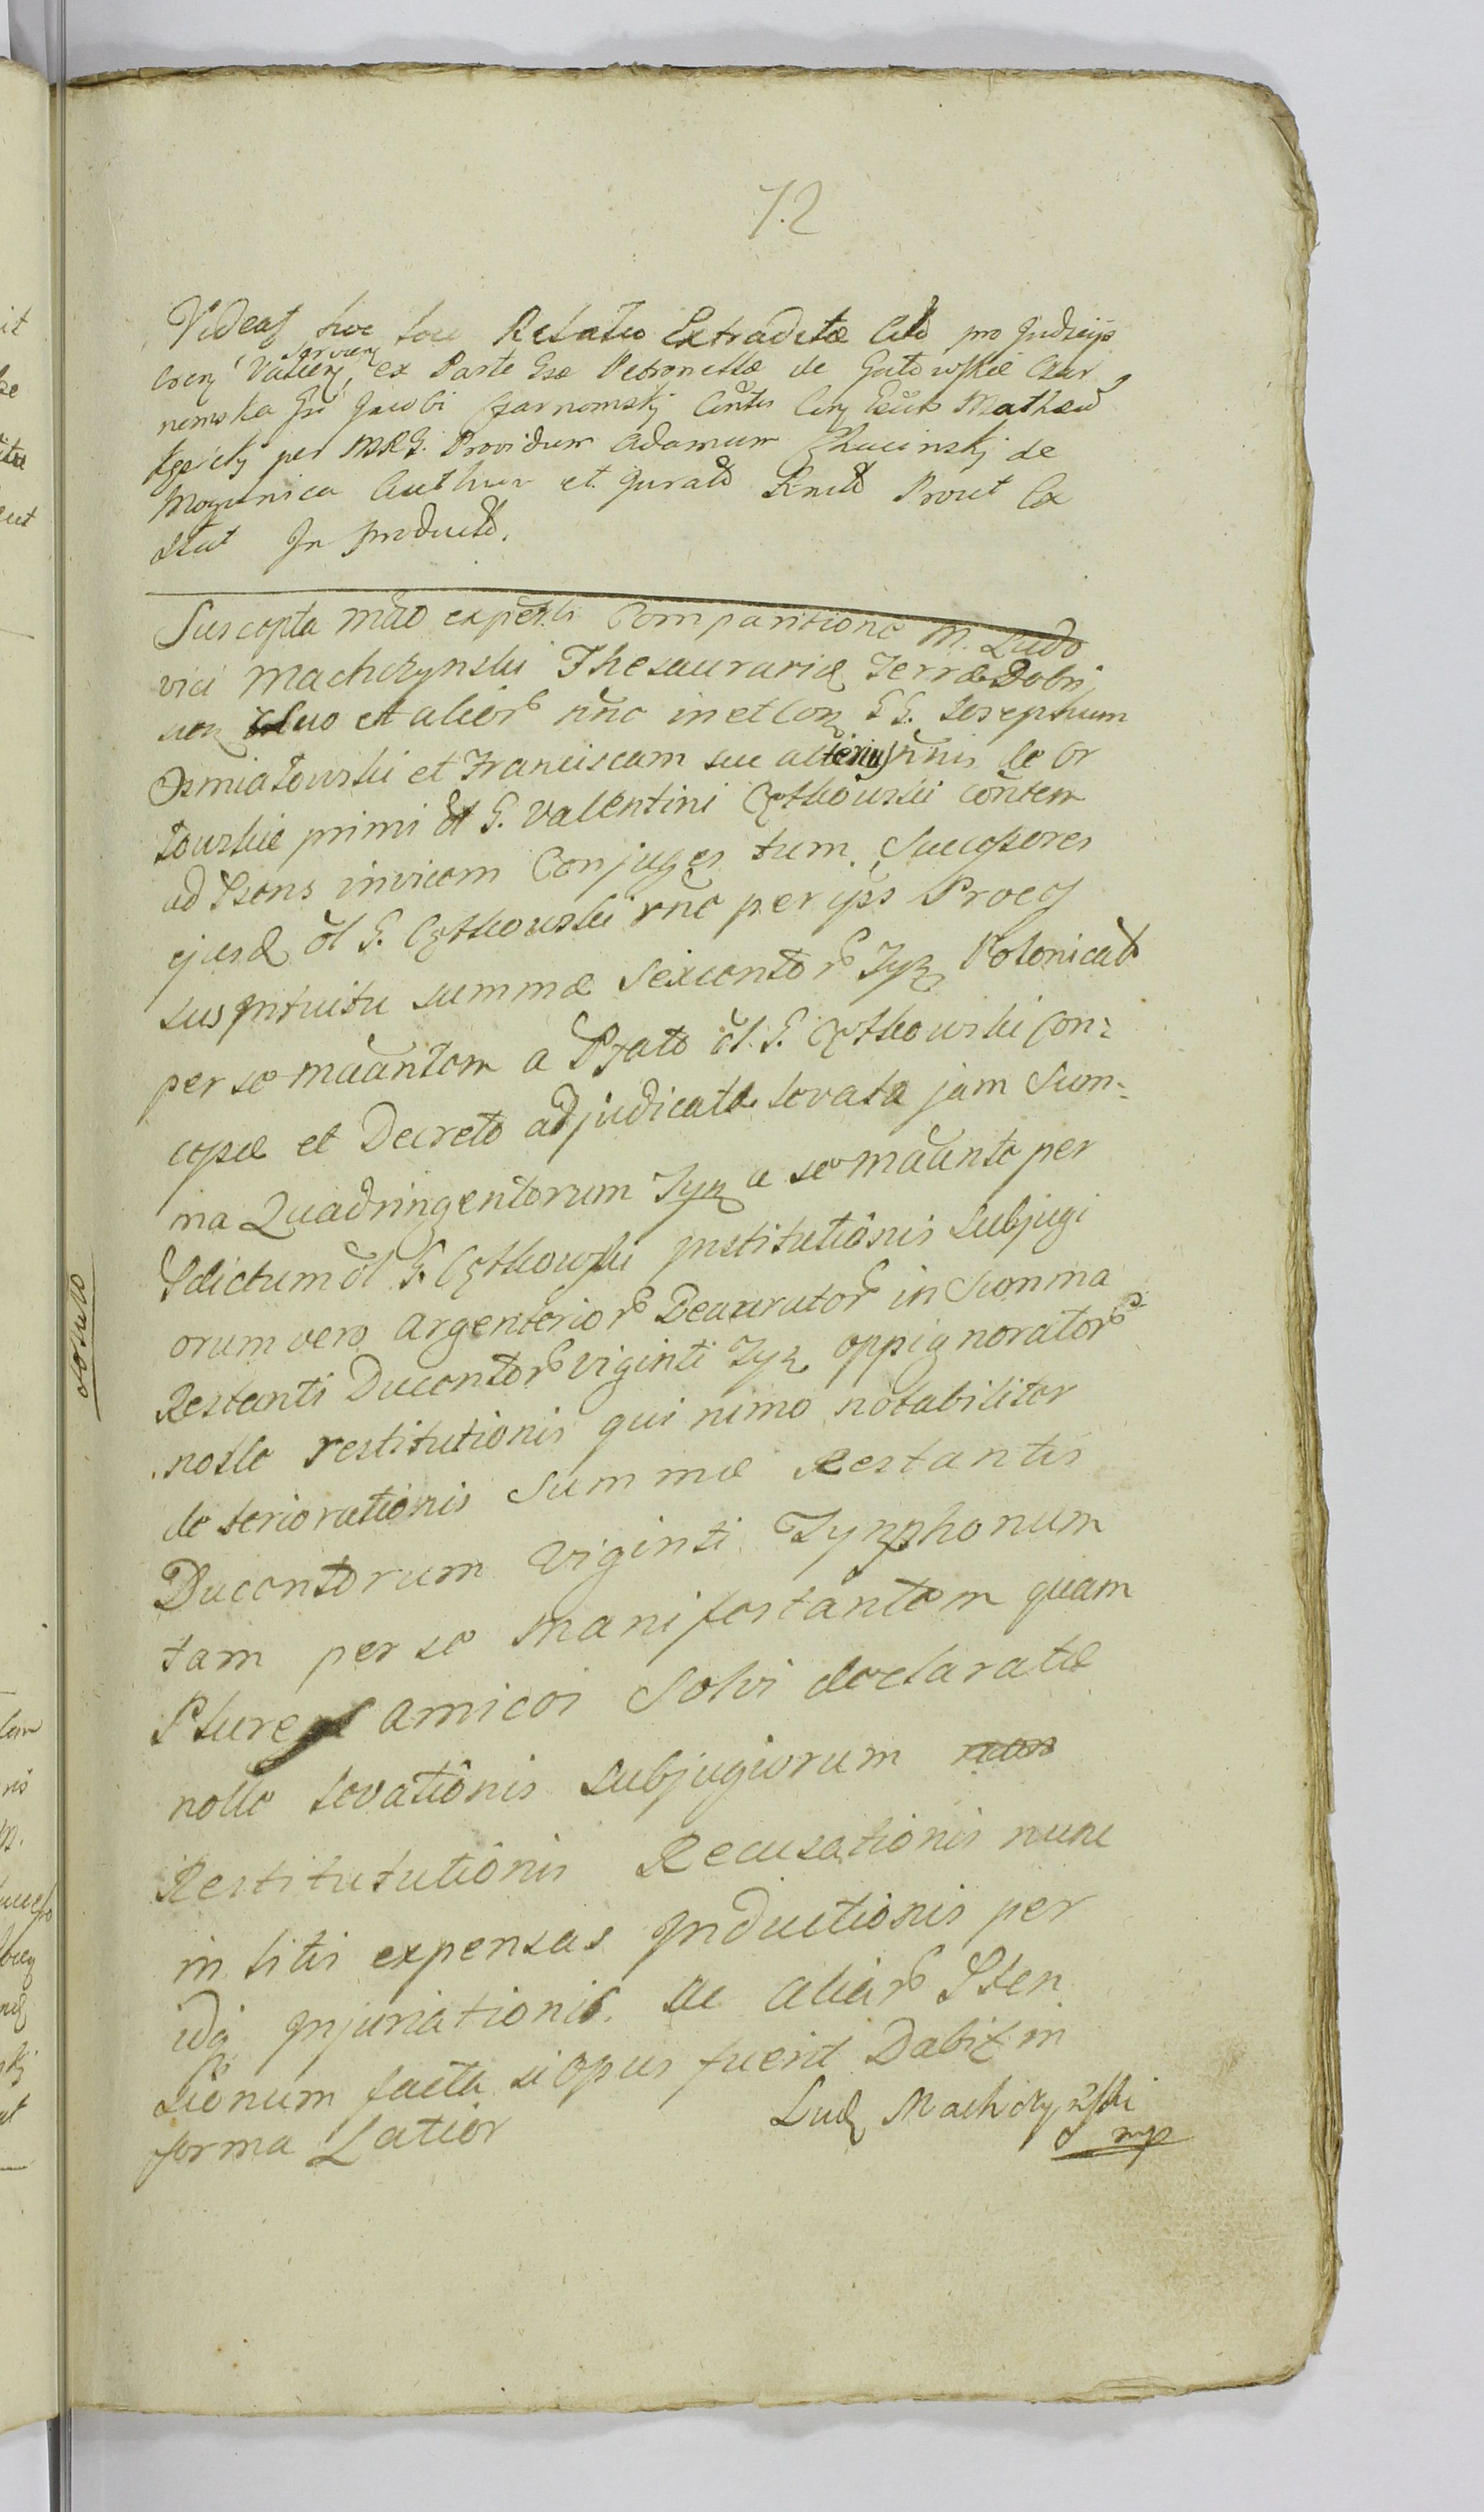 72
Videat hic loci Relatio Extraditæ Citõ pro Judicijs
servien
ex Parte Gsæ Petronellæ de Gutowskie Czar
nomska Gsi Jacobi Czarnomskj Cin Mathæu
per MRG. Providum Adamum Chucinskj de
Mogunica Author et Juratõ Prout Ex
stat In productõ.
Suscepta mão expẽsti Comparitione M. Ludo
vici Machczynski Thesaurariæ Terræ Dobri,
suo et aliõr nñc in et Con GG. Josephum
Osmiatowski et Franciscam suc alterius nñis de Or
towskie primi õl G. Valentini Cętkowski cõntem
ad Psens invicem Conjuges tum Successores
ejusd õl G. Cętkowski rñc per ipss Proceſ
sus Intuitu summæ sexcentor Tyz Polonicał
per se mãantem a Pfato õl. G. Cętkowski con:
cepsæ et Decreto adjudicatæ levata jam Sum:
ma Quadringentorum Tyz a se mãante per
Pdictum õl G. Cętkowski Institutiônis Subjugi
orum vero Argenterior Deaurator in Summa
Restanti Ducentor viginti Tyz oppignorator
nolle restitutionis qui nimo notabiliter
deteriorationis Summæ Restantis
Ducentorum Viginti Tynphonum
tam per se manifestantem quam
Plures amicos Solvi declaratæ
nolle levatiônis subjugiorum non
Restitututiônis Recusationis nunc
in litis expensas Inductionis per
idq Injuriationis. ac aliar Sten
sionum facta si opus fuerit Dabit in
forma Latior
Lud Machczynski
mp